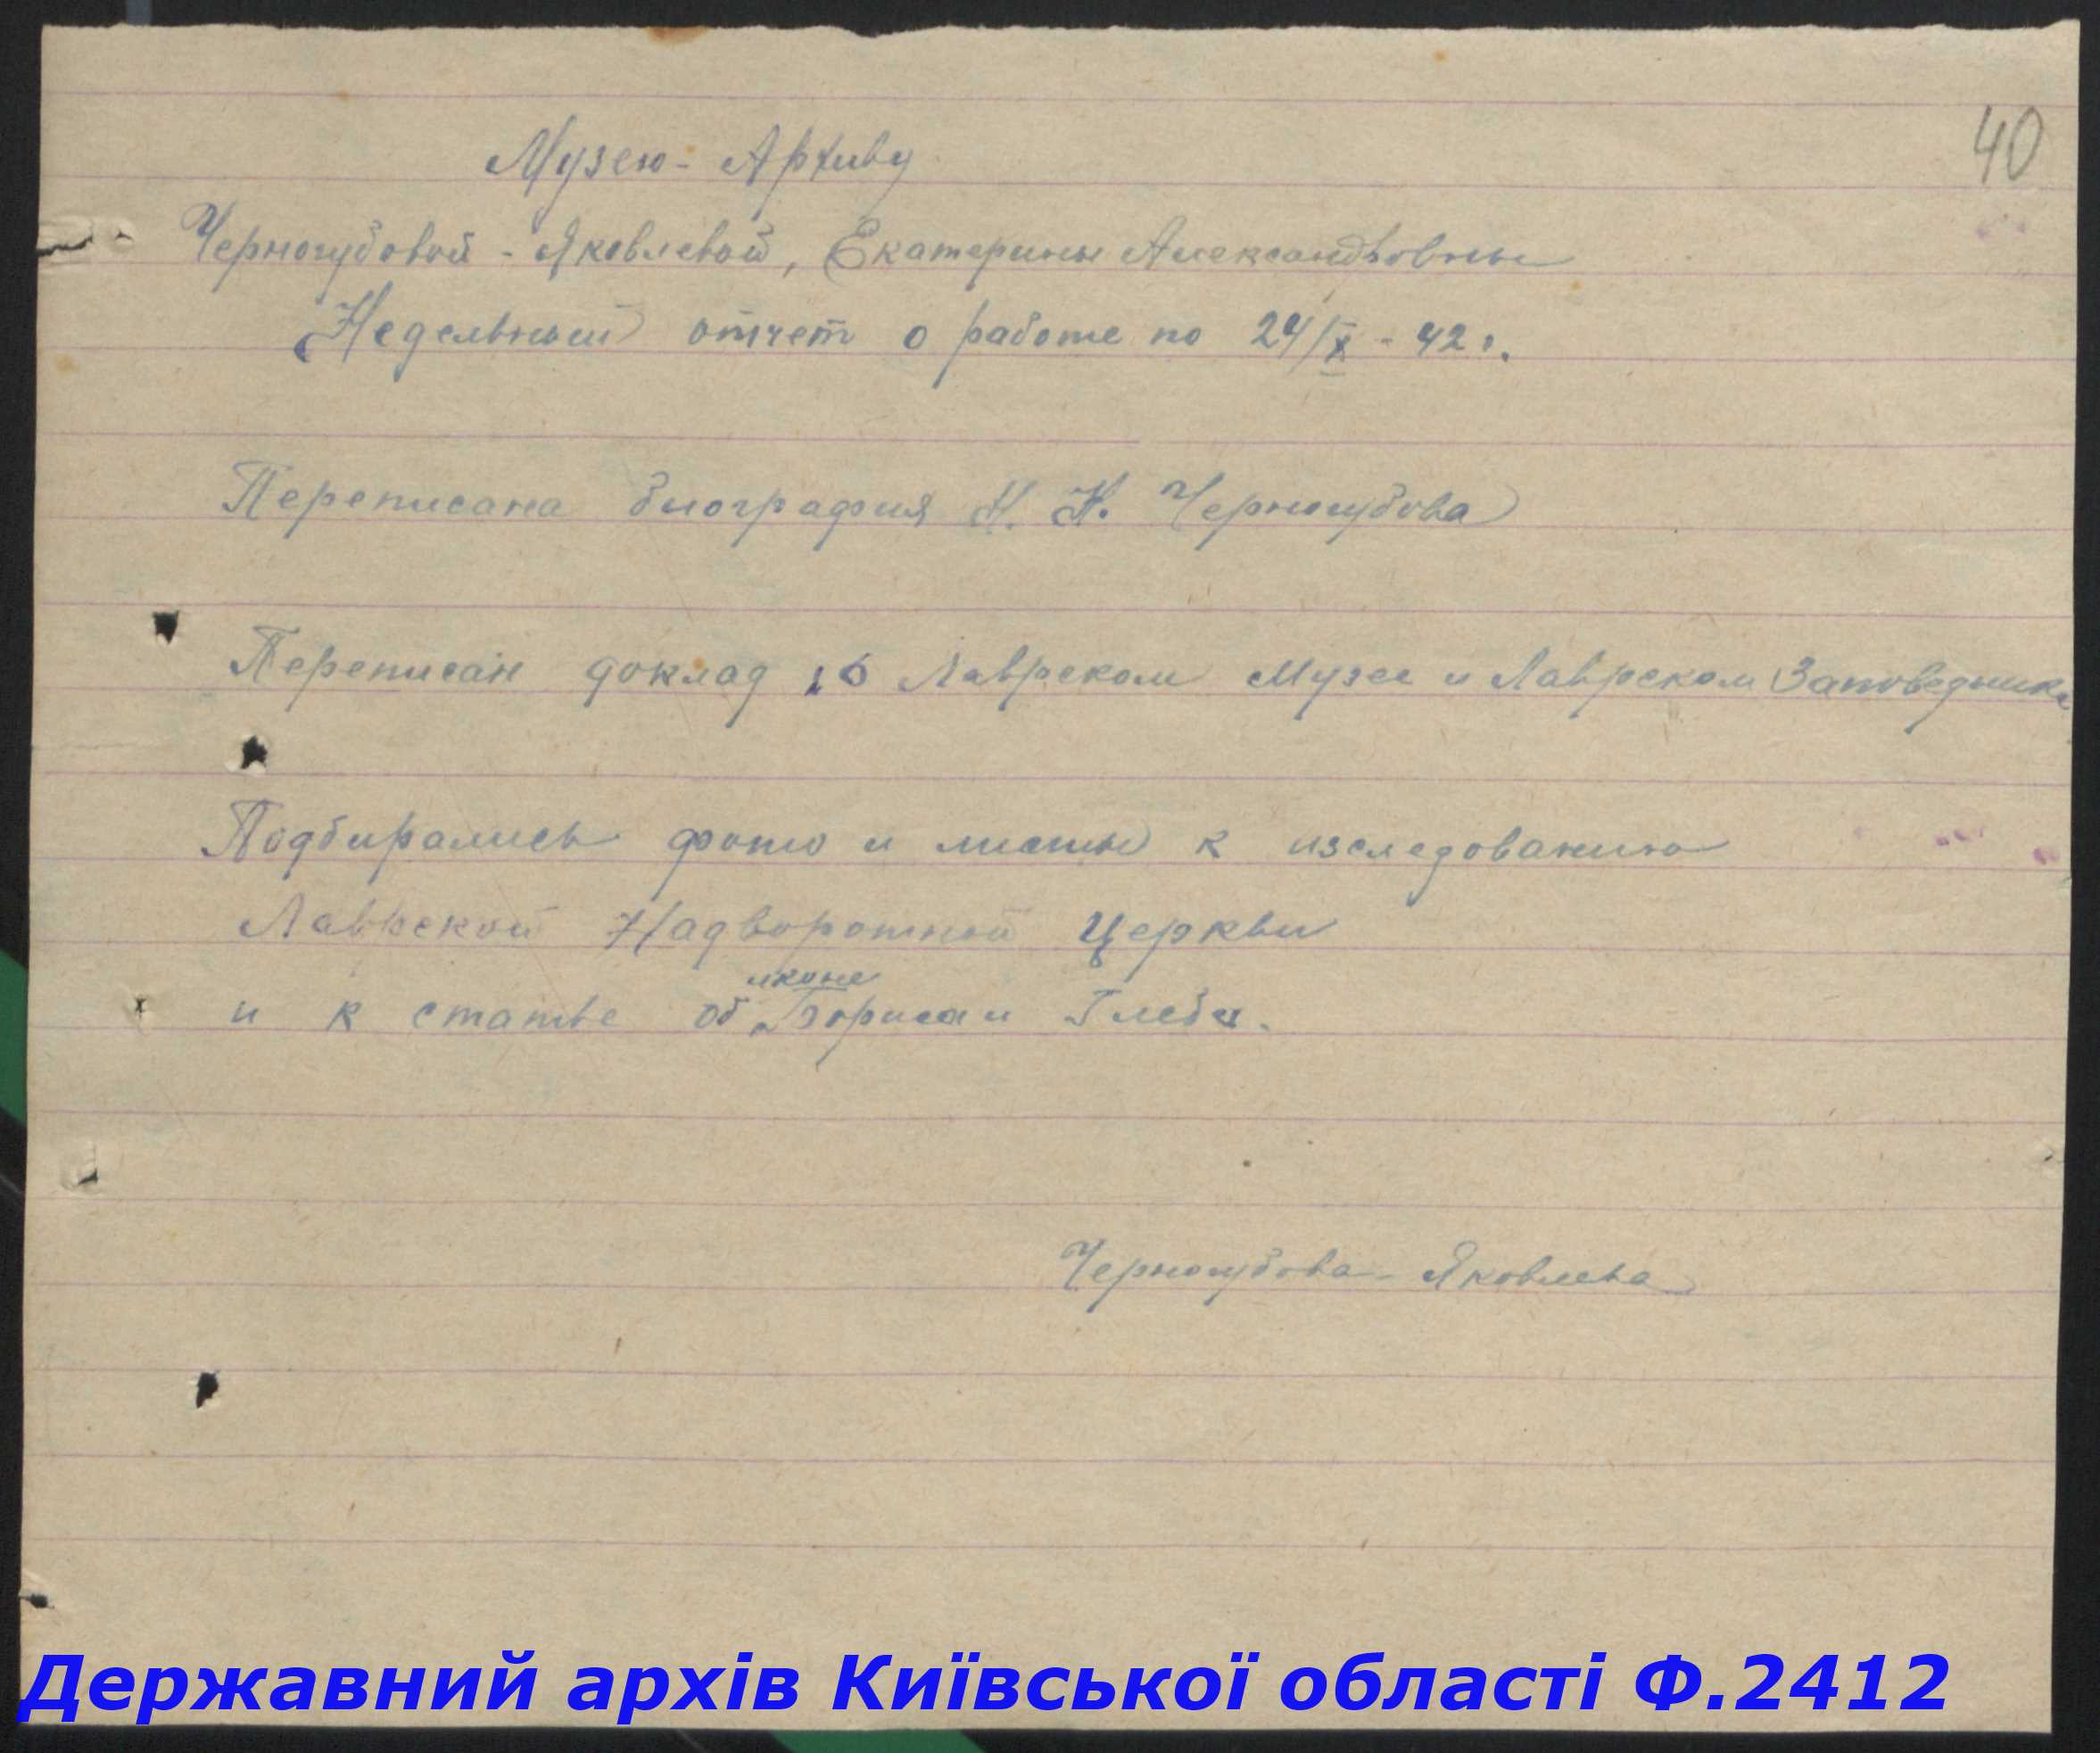 40
Музею - Архиву
Черногубовой - Яковлевой, Екатерины Александровны
Недельный отчет о работе по 24/X - 42 г.
Переписана биография Н. Н. Черногубова
Переписан доклад об Лаврском Музее и Лаврском Заповеднике
Подбирались фото и листы к изследованию
Лаврской Надворотной Церкви
иконе
и к статье об Бориса и Глеба.
Черногубова - Яковлева
Державний архів Київської області Ф.2412